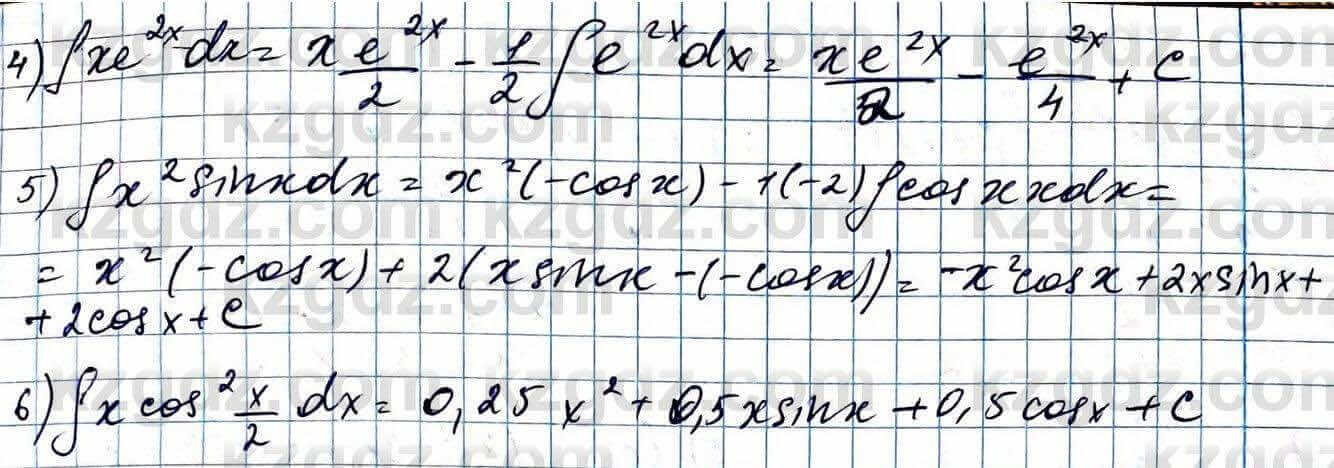 4) ∫xe^{2x}dx = x e^{2x}/2 - 1/2 ∫e^{2x}dx = xe^{2x}/2 - e^{2x}/4 + C
5) ∫x² sinxdx = x²(-cosx) - 1(-2)∫cosxxdx =
= x²(-cosx) + 2(xsinx - (-cosx)) = -x²cosx + 2xsinx +
+ 2cosx + C
6) ∫x cos² x/2 dx = 0,25x² + 0,5xsinx + 0,5cosx + C
kzgdz.com